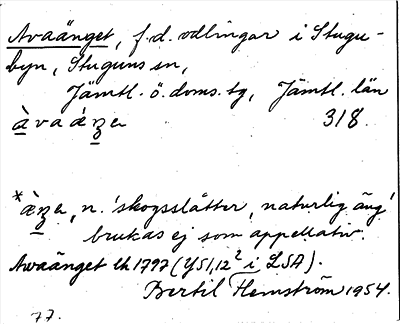 Avaänget, f.d. odlingar i Stugu-
byn, Stuguns sn,
Jämtl. ö. doms. tg, Jämtl. län
àvaáŋe 318.
*àŋe, n. 'skogsslåtter, naturlig äng'
brukas ej som appellativ.
Avaänget lh 1797 (Y51, 12² i LSA).
Bertil Flemström 1954.
77.